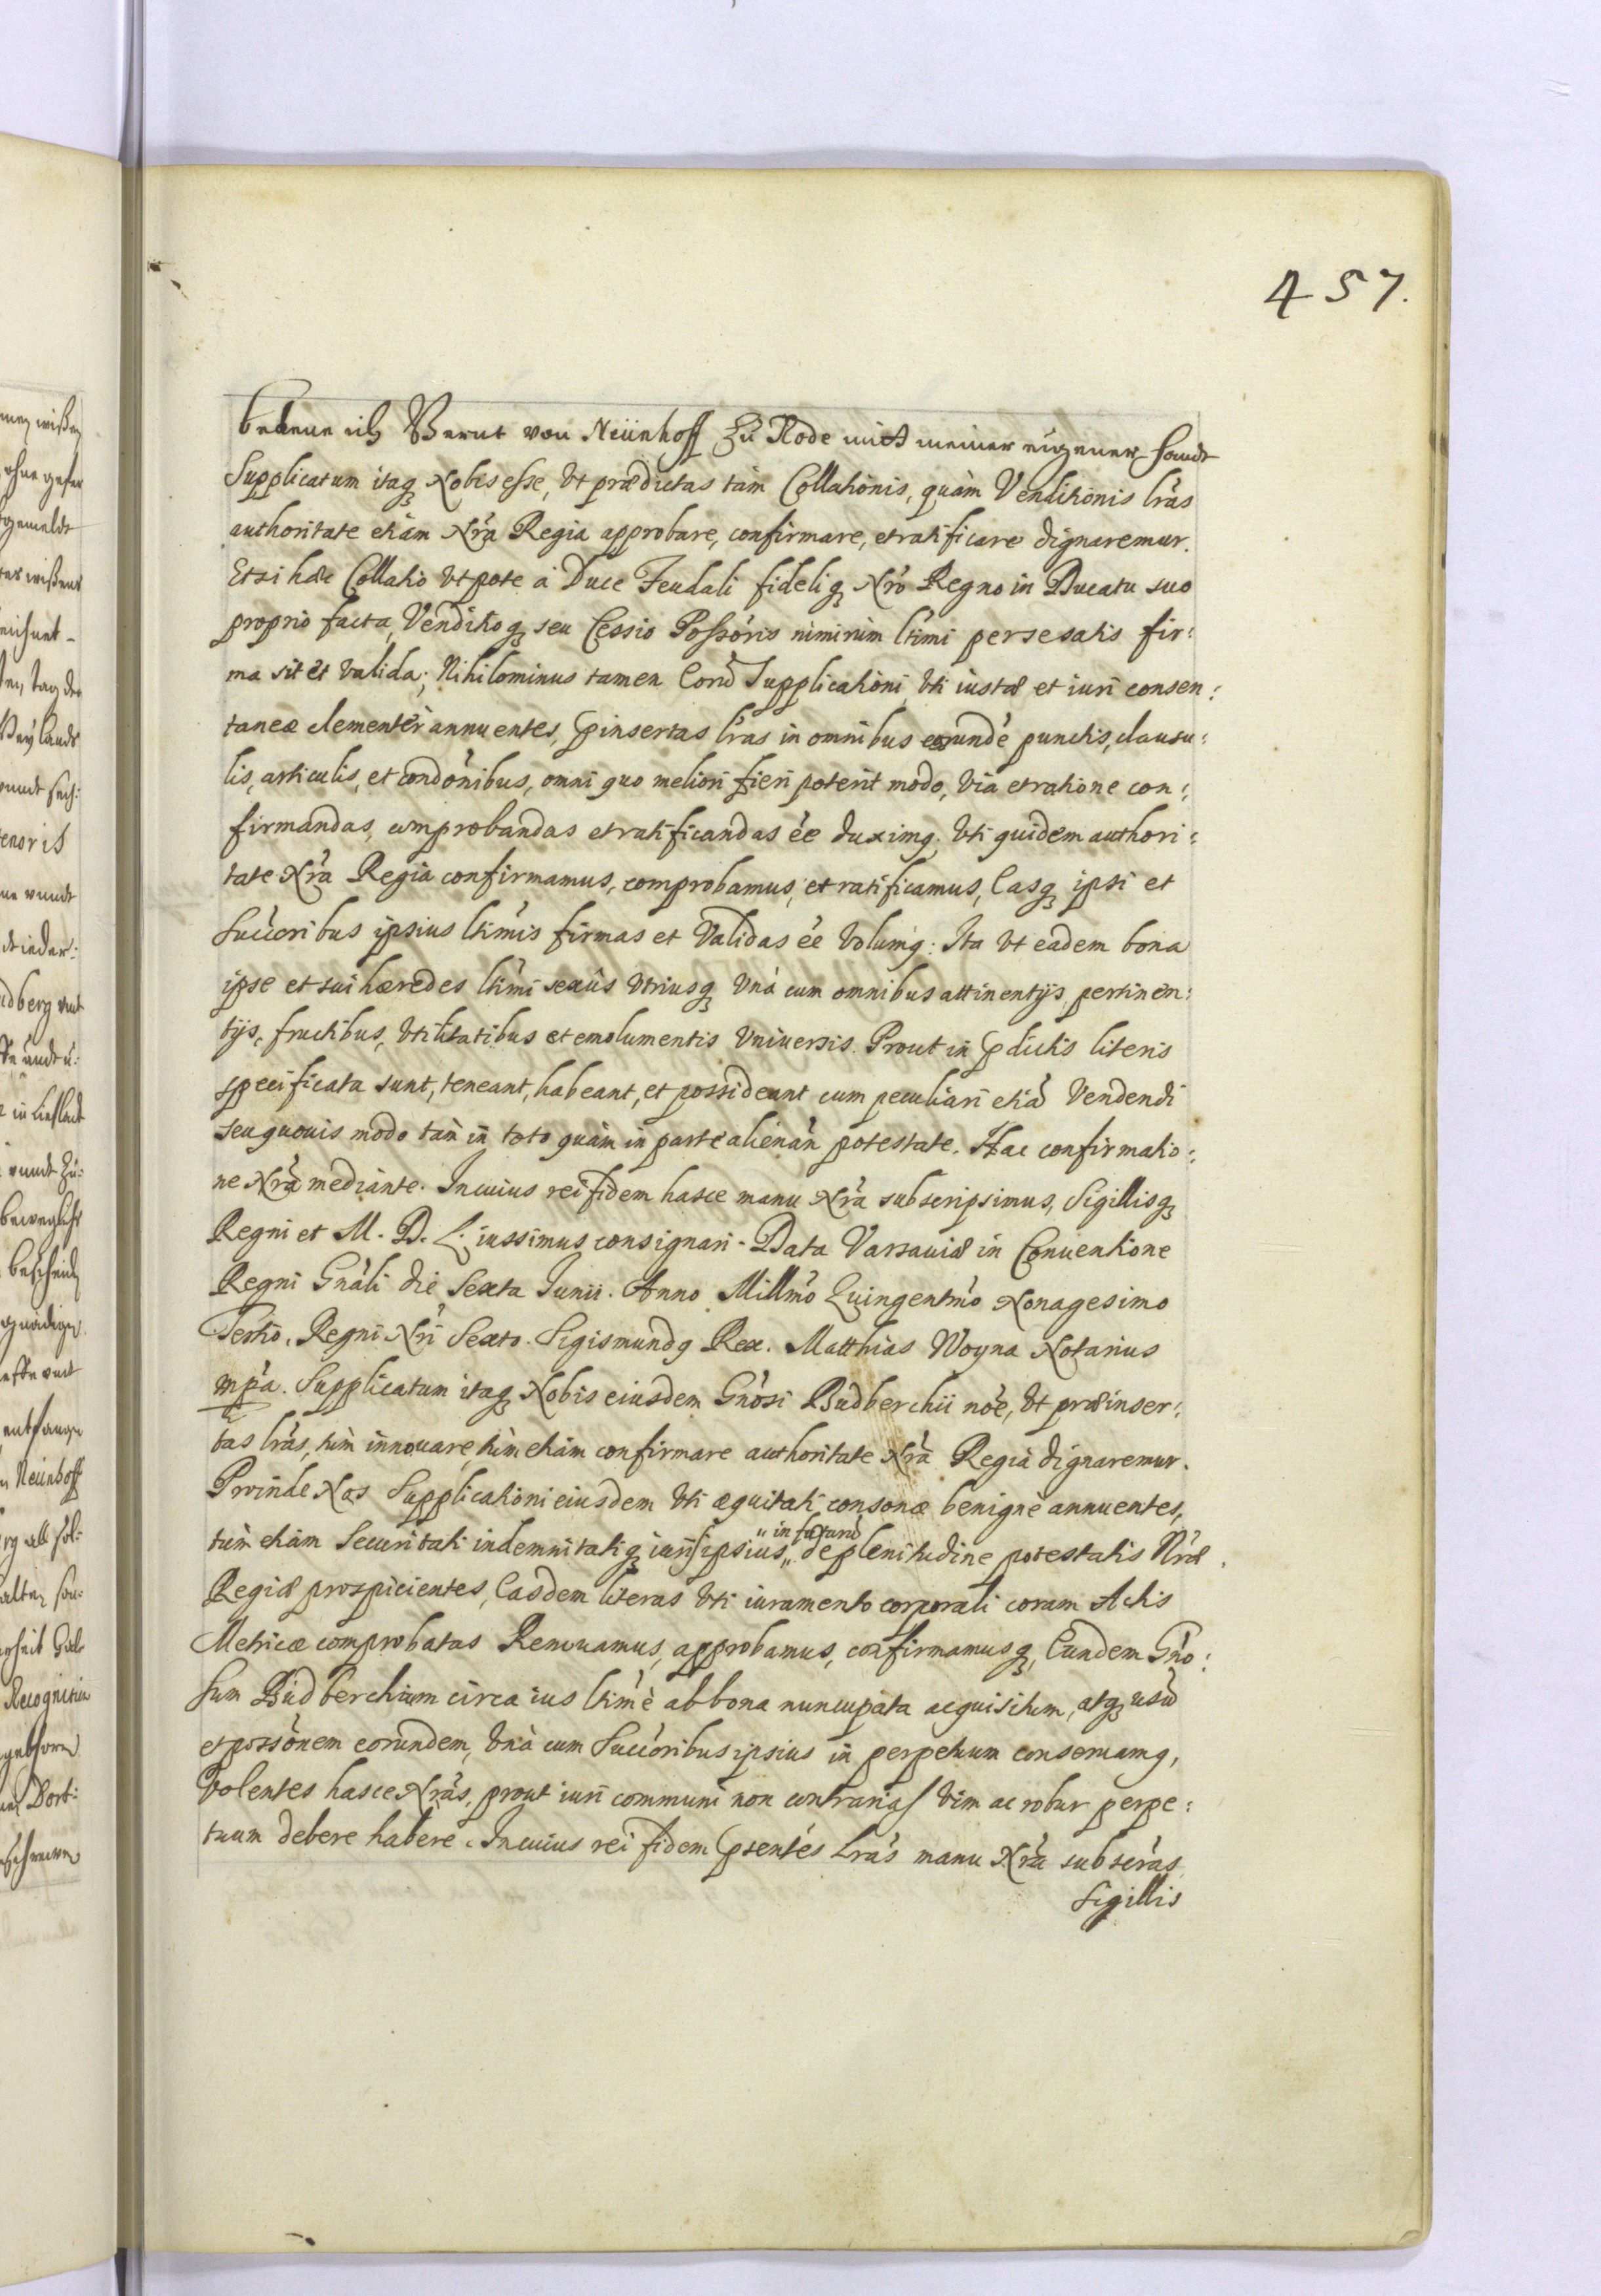 457.
bekene ich Bernt von Neünhoff zu Rode mitt meiner eigener handt
Supplicatum itaq Nobis esse, Vt prædictas tàm Collationis, quàm Venditionis lras
authoritate etiàm Nra Regia approbare, confirmare, et ratificare dignaremur.
Etsi hæc Collatio Vtpote à Duce Feudali fideliq Nro Regno in Ducatu suo
proprio facta, Venditioq seu Cessio Possoris nimirùm ltimi per se satis fir:
ma sit et valida; Nihilominus tamen Eorũ Supplicationi Vti iustæ et iuri consen:
taneæ clementèr annuentes, pinsertas lras in omnibus eorundẽ punctis, clausu:
lis, articulis, et condonibus, omni quo meliori fieri poterit modo, Via et ratione con:
firmandas, comprobandas et ratificandas ẽe duximq. Vti quidem authori:
tate Nra Regia confirmamus, comprobamus, et ratificamus, Easq ipsi et
Succoribus ipsius ltimis firmas et Validas ẽe Volumq: Ita Vt eadem bona
ipse et sui hæredes ltimi sexûs Vtriusq Vnà cum omnibus attinentijs, pertinen:
tijs, fructibus, Vtilitatibus et emolumentis Vniuersis. Prout in pdictis literis
specificata sunt, teneant, habeant, et possideant cum peculiari etiã Vendendi
seu quouis modo tàm in toto quàm in parte alienan potestate. Hac confirmatio:
ne Nra mediante. In cuius rei fidem hasce manu Nra subscripsimus, Sigillisq
Regni et M. D. L. iussimus consignari. Data Varsauiæ in Conuentione
Regni Gnali die Sexta Iunii. Anno Millmo Quingentmo Nonagesimo
Tertio, Regni Nri Sexto. Sigismundq Rex. Matthias Woyna Notarius
mpa. Supplicatum itaq Nobis eiusdem Gnosi Budberchii noe, Vt præinser:
tas lras, tùm innouare, tùm etiàm confirmare authoritate Nra Regià dignaremur.
Proinde Nos Supplicationi eiusdem Vti æquitati consonæ benignè annuentes,
in futurũ
tùm etiàm Securitati indemnitatiq iuris ipsius,, de plenitudine potestatis Nræ
Regiæ prospicientes, Easdem literas Vti iuramento corporali coram Actis
Metricæ comprobatas Renouamus, approbamus, confirmamusq, Eundem Gno:
sum Budberchium circa ius ltimè ab bona nuncupata acquisitum, atq usũ
et possonem eorundem, Vnà cum Succoribus ipsius in perpetuum conseruamq,
Volentes hasce Nras, prout iuri communi non contrarias Vim ac robur perpe:
tuum debere habere. In cuius rei fidem psentes Lras manu Nra subscras
Sigillis